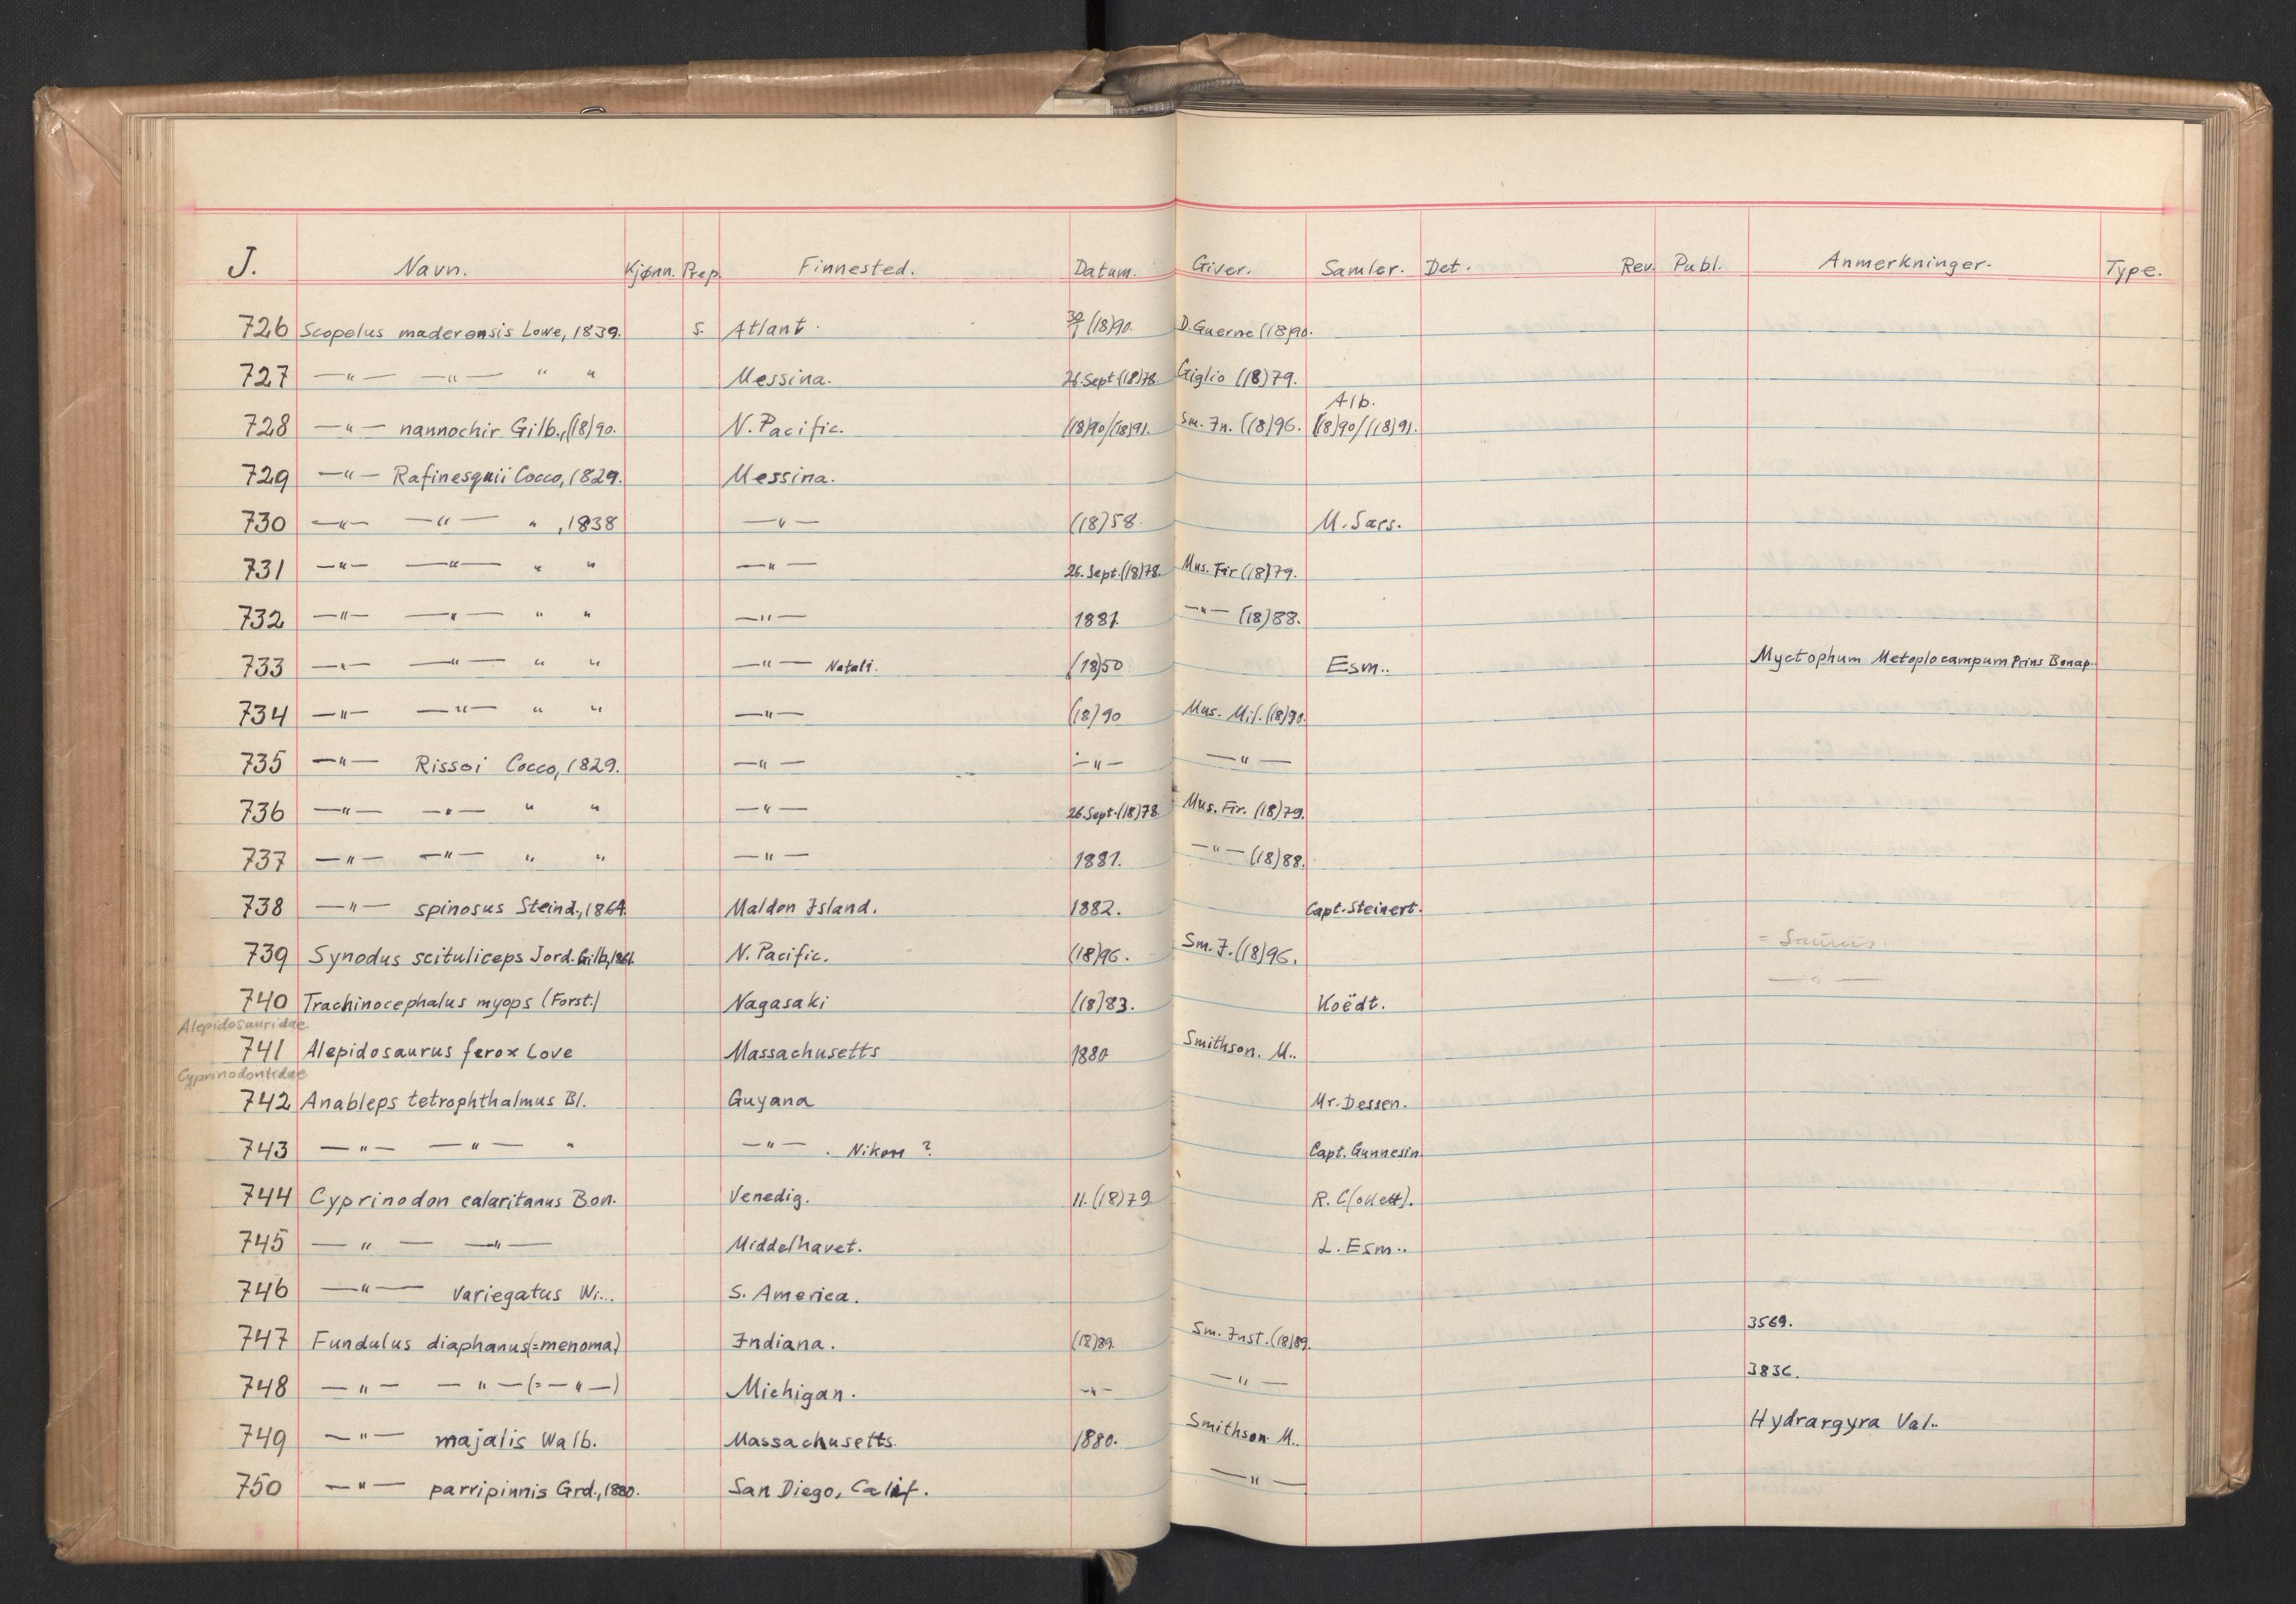 J. Navn. Kjønn. Prep. Finnested. Datum. Giver. Samler. Det. Rev. Publ. Anmerkninger. Type.
726 Scopelus maderensis Lowe, 1839. S. Atlant. 30/1 (18)90. D. Guerne (18)90.
727 —"— —"— " " Messina. 26. Sept (18)78. Giglio (18)79.
728 —"— nannochir Gilb., (18)90. N. Pacific. (18)90/(18)91. Sm. In. (18)96. Alb. (18)90/(18)91.
729 —"— Rafinesquii Cocco, 1829. Messina.
730 —"— —"— " , 1838 —"— (18)58. M. Sars.
731 —"— —"— " " —"— 26. Sept. (18)78. Mus. Fir (18)79.
732 —"— —"— " " —"— 1881. —"— (18)88.
733 —"— —"— " " —"— Natali. (18)50 Esm.. Myctophum Metoplocampum Prins Bonap.
734 —"— —"— " " —"— (18)90 Mus. Mil. (18)90.
735 —"— Rissoi Cocco, 1829. —"— —"— —"—
736 —"— —"— " " —"— 26. Sept. (18)78 Mus. Fir. (18)79.
737 —"— —"— " " —"— 1881. —"— (18)88.
738 —"— spinosus Steind., 1864. Maldon Island. 1882. Capt. Steinert.
739 Synodus scituliceps Jord. Gilb, N. Pacific. (18)96. Sm. I. (18)96. = Saurus.
740 Trachinocephalus myops (Forst.) Nagasaki (18)83. Koëdt. —"—
Alepidosauridae
741 Alepidosaurus ferox Love Massachusetts 1880 Smithson. M..
Cyprinodontidae
742 Anableps tetrophthalmus Bl. Guyana Mr. Dessen.
743 —"— —"— " —"— . Nikon ? Capt. Gunnesin.
744 Cyprinodon calaritanus Bon. Venedig. 11. (18)79 R. C(ollett).
745 —"— —"— Middelhavet. L. Esm..
746 —"— variegatus Wi... S. America.
747 Fundulus diaphanus (=menoma) Indiana. (18)89. Sm. Inst. (18)89. 3569.
748 —"— —"— (=—"—) Michigan. —"— —"— 3836.
749 —"— majalis Walb. Massachusetts. 1880. Smithson M.. Hydrargyra Val..
750 —"— parvipinnis Grd., 1880. San Diego, Calif. —"—